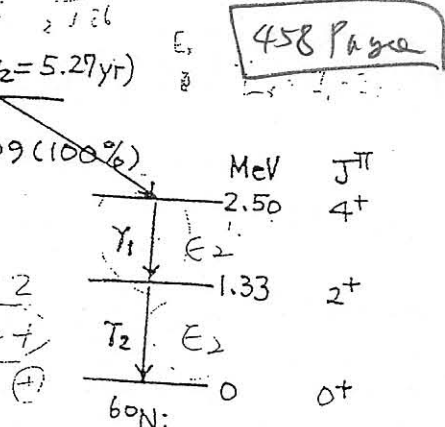 458
₂=5.27yr)
09(100%)
MeV Jᴨ
2.50 4⁺
γ₁ E2
1.33 2⁺
2
γ₂ E2
+
0 0⁺
⁶⁰Ni